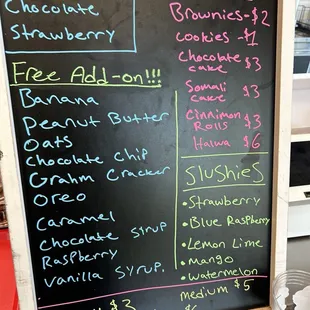 Chocolate
Strawberry
Free Add-on!!!
Banana
Peanut Butter
Oats
Chocolate chip
Grahm Cracker
Oreo
Caramel
Chocolate syrup
Raspberry
Vanilla syrup.
$3
Brownies-$2
Cookies-$1
Chocolate
cake $3
Somali
cake $3
Cinnimon
Rolls $3
Halwa $6
Slushies
•Strawberry
•Blue Raspberry
•Lemon Lime
•Mango
•Watermelon
medium $5